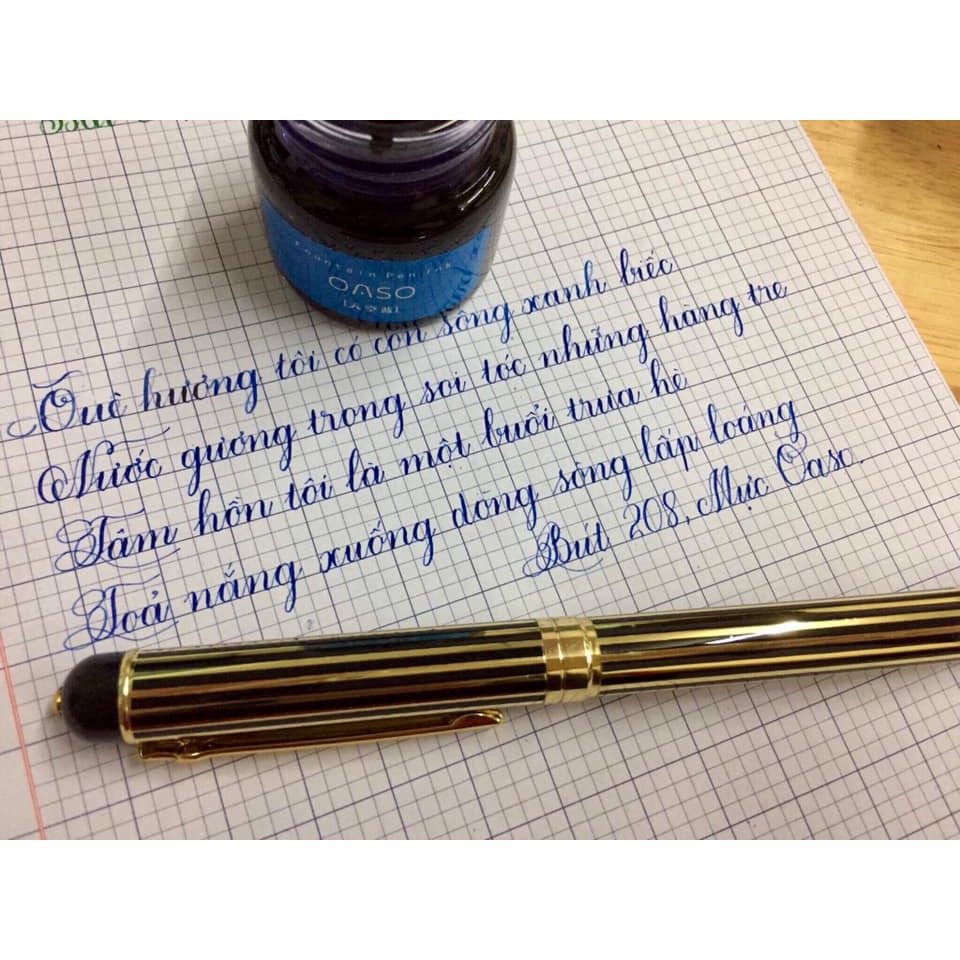 Fountain Pen Ink
OASO
[天空蓝]
Quê hương tôi có con sông xanh biếc
Nước gương trong soi tóc những hàng tre
Tâm hồn tôi là một buổi trưa hè
Toả nắng xuống dòng sông lấp loáng
Bút 208, Mực Oaso.